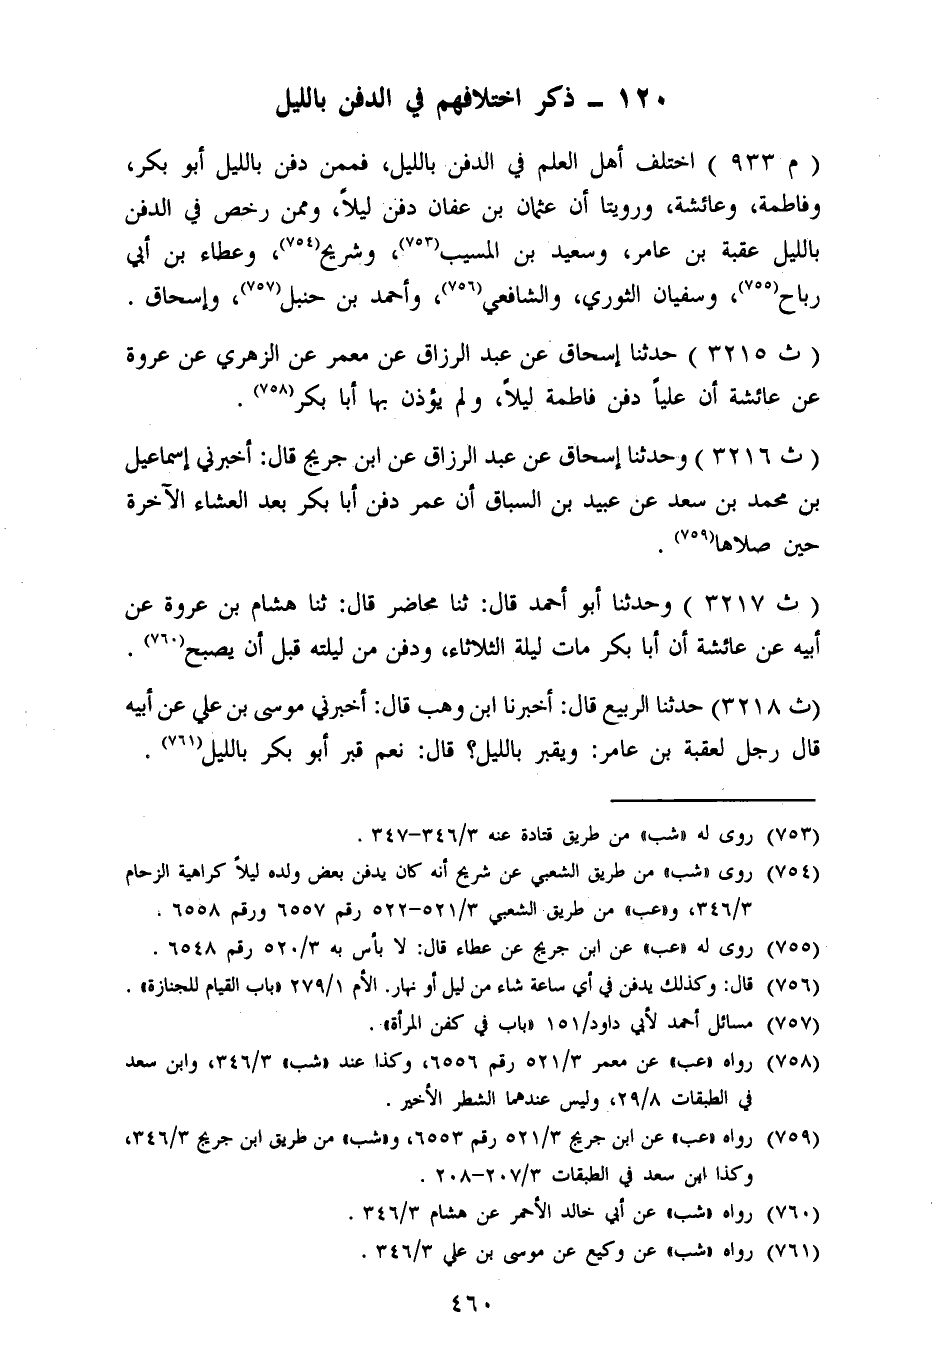 ١٢٠ ـ ذكر اختلافهم في الدفن بالليل
( م ٩٣٣ ) اختلف أهل العلم في الدفن بالليل، فممن دفن بالليل أبو بكر،
وفاطمة، وعائشة، وروينا أن عثمان بن عفان دفن ليلاً، وممن رخص في الدفن
بالليل عقبة بن عامر، وسعيد بن المسيب(٧٥٣)، وشريح(٧٥٤)، وعطاء بن أبي
رباح(٧٥٥)، وسفيان الثوري، والشافعي(٧٥٦)، وأحمد بن حنبل(٧٥٧)، وإسحاق .
( ث ٣٢١٥ ) حدثنا إسحاق عن عبد الرزاق عن معمر عن الزهري عن عروة
عن عائشة أن علياً دفن فاطمة ليلاً، ولم يؤذن بها أبا بكر(٧٥٨) .
( ث ٣٢١٦ ) وحدثنا إسحاق عن عبد الرزاق عن ابن جريج قال: أخبرني إسماعيل
بن محمد بن سعد عن عبيد بن السباق أن عمر دفن أبا بكر بعد العشاء الآخرة
حين صلاها(٧٥٩) .
( ث ٣٢١٧ ) وحدثنا أبو أحمد قال: ثنا محاضر قال: ثنا هشام بن عروة عن
أبيه عن عائشة أن أبا بكر مات ليلة الثلاثاء، ودفن من ليلته قبل أن يصبح(٧٦٠) .
(ث ٣٢١٨) حدثنا الربيع قال: أخبرنا ابن وهب قال: أخبرني موسى بن علي عن أبيه
قال رجل لعقبة بن عامر: ويقبر بالليل؟ قال: نعم قبر أبو بكر بالليل(٧٦١) .
(٧٥٣) روى له «شب» من طريق قتادة عنه ٣٤٦/٣–٣٤٧ .
(٧٥٤) روى «شب» من طريق الشعبي عن شريح أنه كان يدفن بعض ولده ليلاً كراهية الزحام
٣٤٦/٣، و«عب» من طريق الشعبي ٥٢١/٣–٥٢٢ رقم ٦٥٥٧ ورقم ٦٥٥٨ .
(٧٥٥) روى له «عب» عن ابن جريج عن عطاء قال: لا بأس به ٥٢٠/٣ رقم ٦٥٤٨ .
(٧٥٦) قال: وكذلك يدفن في أي ساعة شاء من ليل أو نهار. الأم ٢٧٩/١ «باب القيام للجنازة» .
(٧٥٧) مسائل أحمد لأبي داود/١٥١ «باب في كفن المرأة» .
(٧٥٨) رواه «عب» عن معمر ٥٢١/٣ رقم ٦٥٥٦، وكذا عند «شب» ٣٤٦/٣، وابن سعد
في الطبقات ٢٩/٨، وليس عندهما الشطر الأخير .
(٧٥٩) رواه «عب» عن ابن جريج ٥٢١/٣ رقم ٦٥٥٣، و«شب» من طريق ابن جريج ٣٤٦/٣،
وكذا ابن سعد في الطبقات ٢٠٧/٣–٢٠٨ .
(٧٦٠) رواه «شب» عن أبي خالد الأحمر عن هشام ٣٤٦/٣ .
(٧٦١) رواه «شب» عن وكيع عن موسى بن علي ٣٤٦/٣ .
٤٦٠